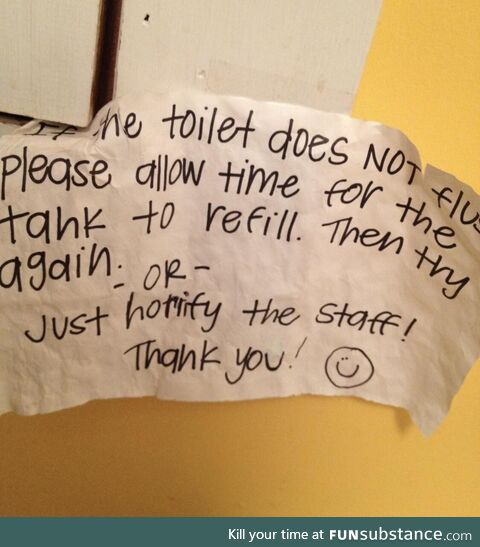 If the toilet does NOT flus
Please allow time for the
tank to refill. Then try
again. - OR -
Just horrify the staff!
Thank you!
Kill your time at FUNsubstance.com